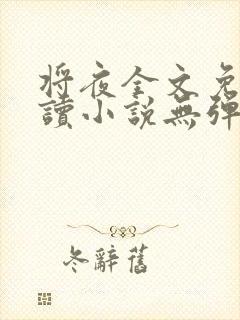 將夜全文免
讀小說無彈
冬辭舊